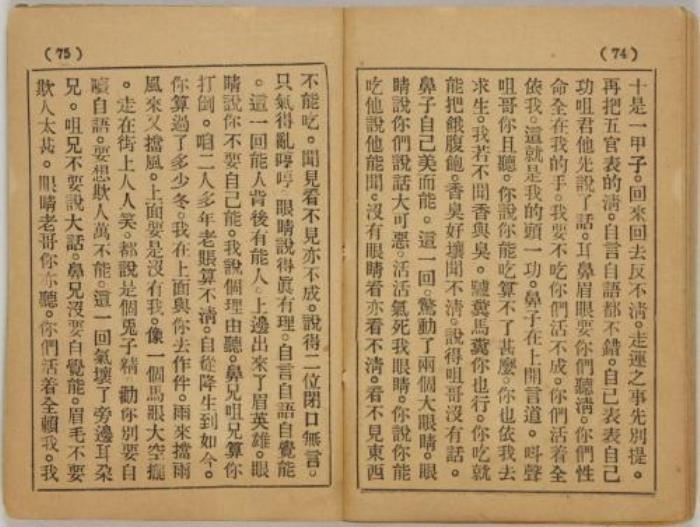 (74)
十是一甲子。回來回去反不清。走運之事先別提。
再把五官表的清。自言自語都不錯。自己表表自己
功咀君他先說了話。耳鼻眉眼要你們聽清。你們性
命全在我的手。我要不吃你們活不成。你們活着全
依我。這就是我的頭一功。鼻子在上開言道。呌聲
咀哥你且聽。你說你能吃算不了甚麽。你也依我去
求生。我若不聞香與臭。驢糞馬糞你也行。你吃就
能把餓腹飽。香臭好壞聞不清。說得咀哥沒有話。
鼻子自己美而能。這一回。驚動了兩個大眼睛。眼
睛說你們說話大可惡。活活氣死我眼睛。你說你能
吃他說他能聞。沒有眼睛看亦看不清。看不見東西
(75)
不能吃。聞見看不見亦不成。說得二位閉口無言。
只氣得亂哼哼。眼睛說得眞有理。自言自語自覺能
。這一回能人背後有能人。上邊出來了眉英雄。眼
睛說你不要自己能。我說個理由聽。鼻兄咀兄算你
打倒。咱二人多年老賬算不清。自從降生到如今。
你算過了多少冬。我在上面與你去作件。雨來擋雨
風來又擋風。上面要是沒有我。像一個馬眼大空擺
。走在街上人人笑。都說是個兎子精。勸你別要自
嚷自語。要想欺人萬不能。這一回氣壞了旁邊耳朶
兄。咀兄不要說大話。鼻兄沒要自覺能。眉毛不要
欺人太甚。眼睛老哥你亦聽。你們活着全賴我。我